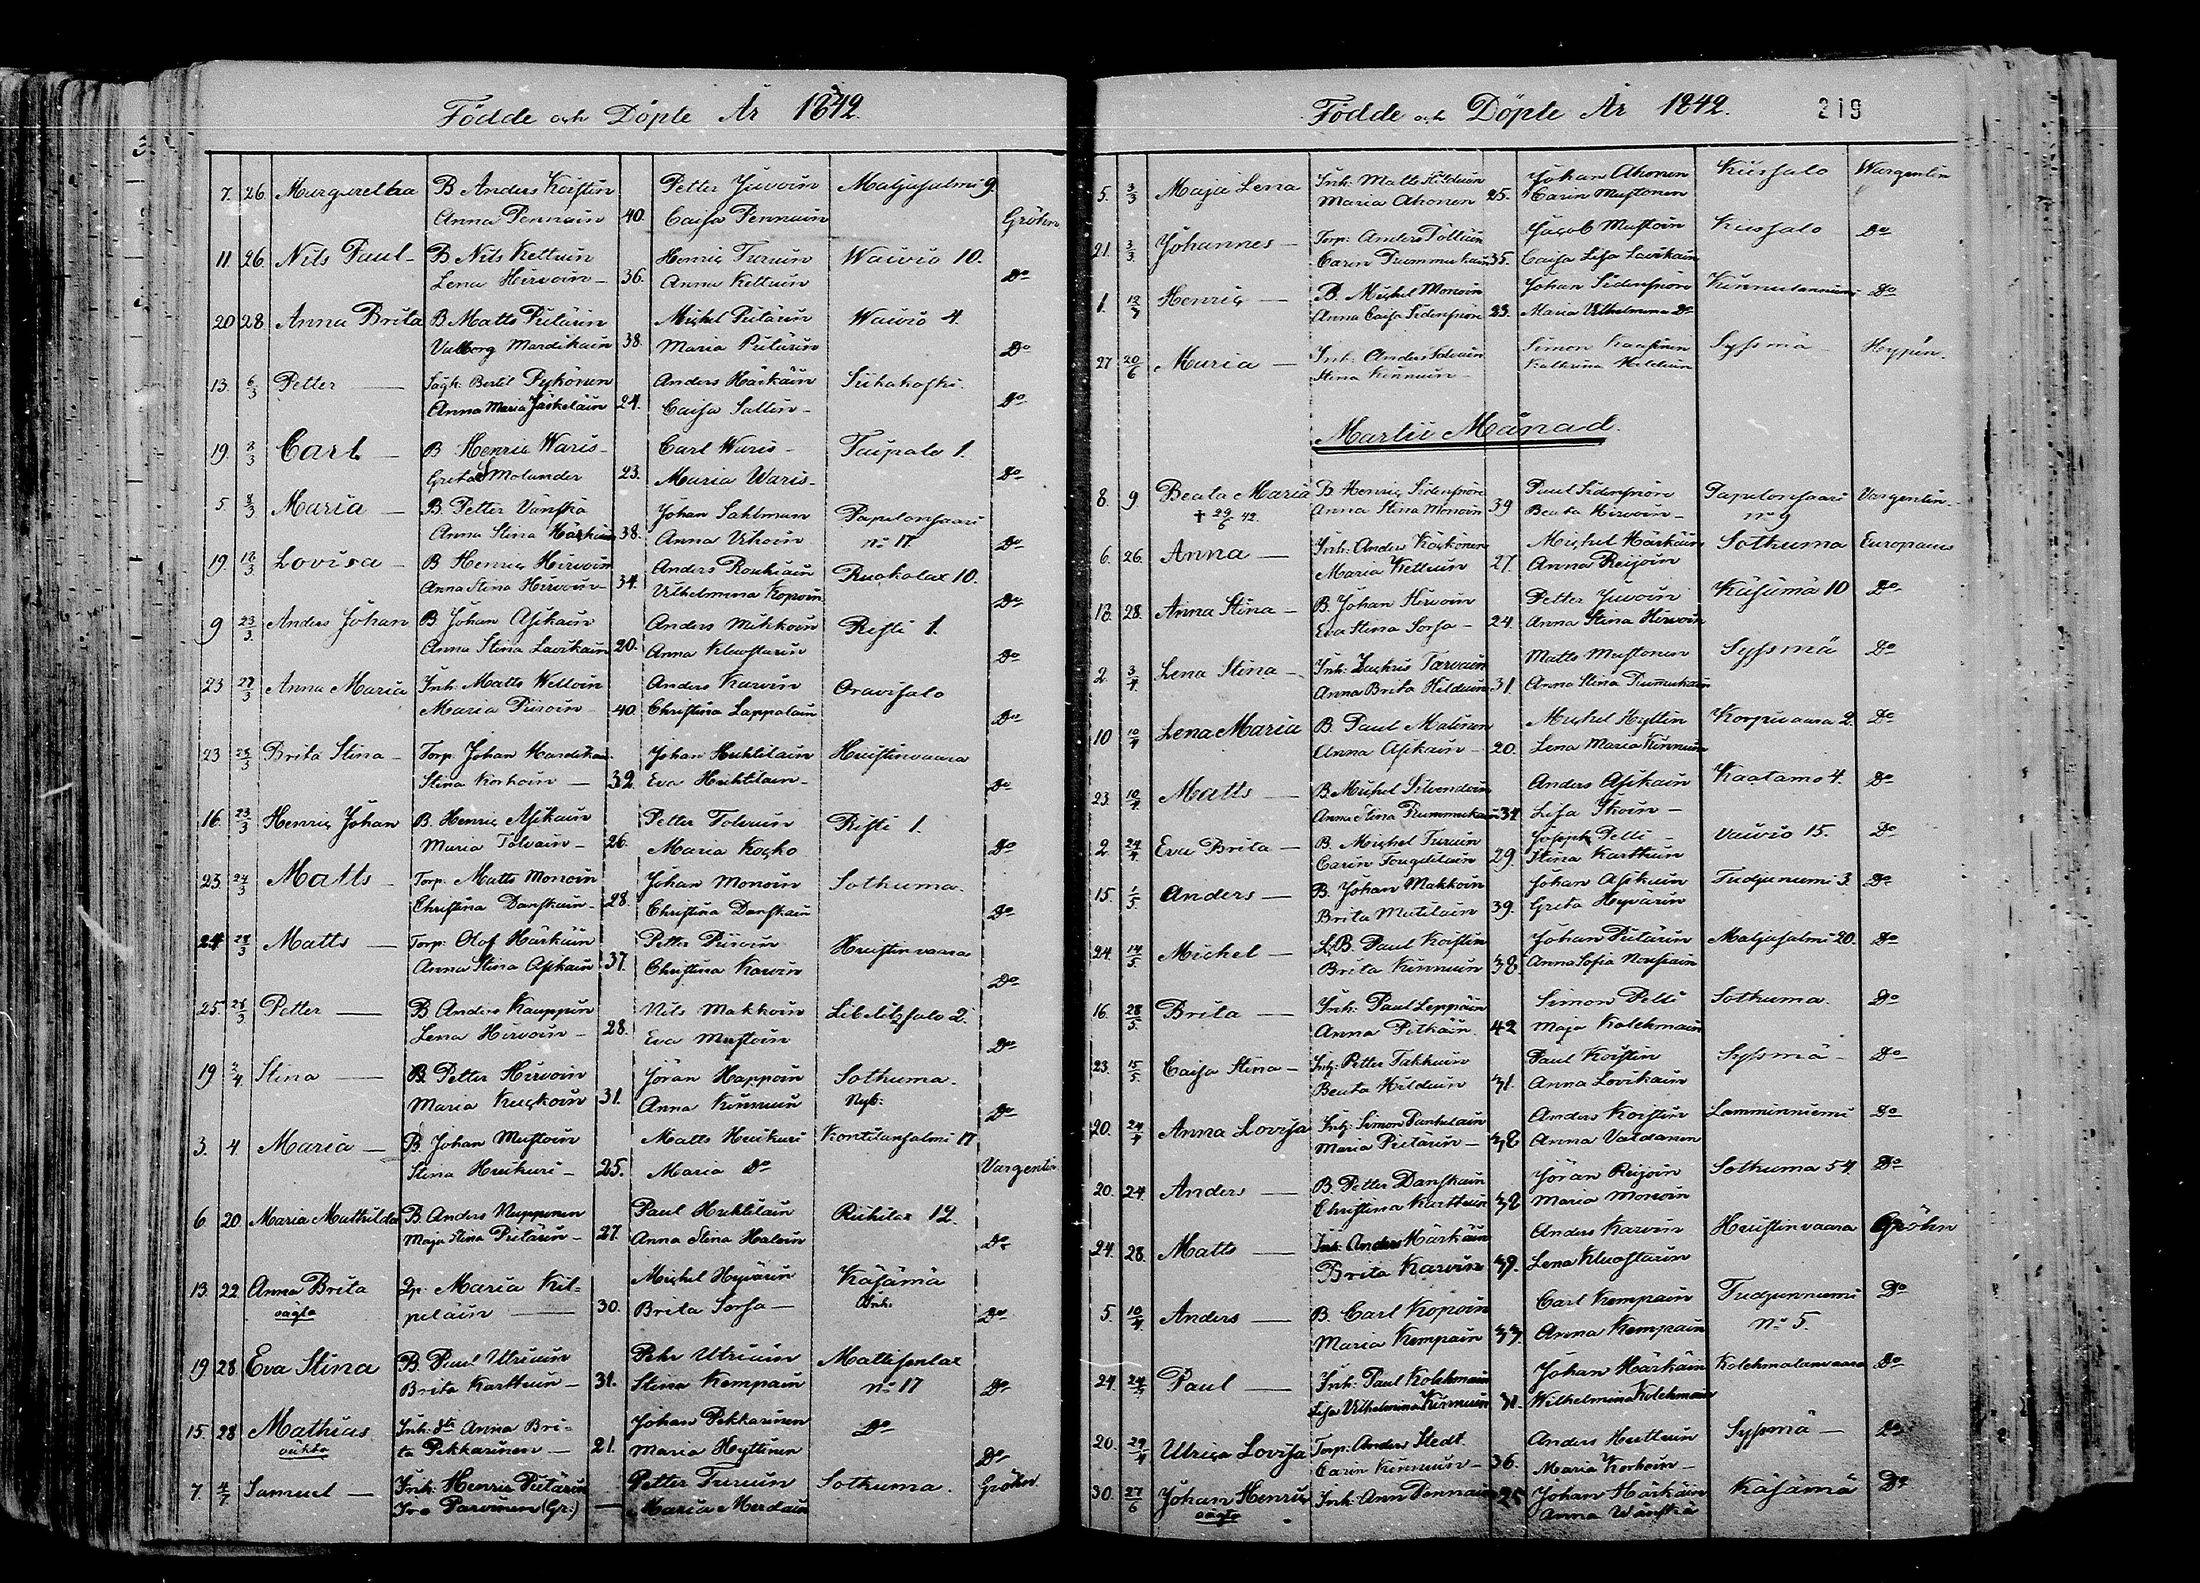 Födde och Döpte År 1842.
7. 26. Margaretha B Anders Koistin Petter Juvoin Matjusalmi 9.
Anna Pennain 40. Caisa Pennain Gröhn
11. 26. Nils Paul - B Nils Kettuin Henric Turuin Waivio 10.
Lena Hirvoin - 36. Anna Kettuin Do
20 28. Anna Brita B Matts Pitärin Michel Pitärin Waivio 4.
Valborg Mardikain 38. Maria Pitärin Do
13. 6/3 Petter - Bertil Pykönen Anders Härkäin Siikakoski.
Anna Maria Jäskeläin 24. Caisa Sallin - Do
19. 8/3 Carl - B Henric Waris - Carl Waris - Taipale 1.
Greta Molander 23. Maria Waris - Do
5. 8/3 Maria - B. Petter Vänskä Johan Sahlman Papelonsaari
Anna Stina Härkäin 38. Anna Uhoin no 17. Do
19. 18/3 Lovisa - B Henric Hirvoin Anders Rouhiain Ruokolax 10.
Anna Stina Hirvoin - 34. Vilhelmina Kopoin Do
9 23/3 Anders Johan B Johan Asikain Anders Mikkoin Risti 1.
Anna Stina Lavikain 20. Anna Kluostarin Do
23 27/3 Anna Maria Inh: Matts Wellvin Anders Karvin Oravisalo
Maria Piiroin - 40. Christina Lappalain Do
23 28/3 Brita Stina - Torp. Johan Mardikain Johan Huhtilain Huistinvaara
Stina Korhoin - 32. Eva Huhtilain - Do
16. 23/3 Henric Johan B. Henric Asikain Petter Tolvain Risti 1.
Maria Tolvain - 26. Maria Kocko Do
23. 27/3 Matts - Torp. Matts Monoin Johan Monoin Sothuma.
Christina Danskain - 28. Christina Danskain Do
24 28/3 Matts - Torp: Olof Härkäin Petter Piiroin Huistinvaara
Anna Stina Asikain 37. Christina Karvin Do
25. 28/3 Petter - B Anders Kauppin Nils Makkoin Libelitzsalo 2.
Lena Hirvoin - 28. Eva Mustoin Do
19 2/4 Stina - B Petter Hirvoin Jöran Happoin Sothuma.
Maria Kuckoin 31. Anna Kinnuin Nyb: Do
3. 4. Maria - B. Johan Mustoin Matts Huikuri Kontilansalmi 17
Stina Huikuri - 25. Maria Do Vargentin
6. 20 Maria Mathilda B. Anders Nupponen Paul Huhtilain Riihilax 12.
Maja Stina Pitärin - 27. Anna Stina Halvin Do
13. 22. Anna Brita Maria Kil- Michel Hyvärin Käsämä
oägta peläin - 30. Brita Sorsa - Inh: Do
19. 28. Eva Stina B Paul Utriain Pehr Utriain Mattisenlax
Brita Karttuin - 31. Stina Kempain no 17 Do
15. 28 Mathias Inh: Anna Bri- Johan Pekkarinen Do
oäkta ta Pekkarinen - 21. Maria Hyttinen Do
7. 4/7 Samuel - Inh: Henric Pitärin Petter Turuin Sothuma. Gröhn
Iva Paronen (Gr.) - Maria Merdain
Födde och Döpte År 1842. 219
5. 3/3 Maja Lena Inh: Matts Hilduin Johan Ahonen Kiissalo Wargentin
Maria Ahonen 25. Carin Mustonen
21. 3/3 Johannes - Torp: Anders Jacob Mustoin Kiissalo Do
Carin Rummukain 35. Caisa Lisa Lavikain
1. 12/3 Henric - B. Michel Monoin Johan Sidensnöre Kinnulanniemi Do
Anna Caisa Sidensnöre 23. Maria Vilhelmina Do
27 20/6 Maria - Inh. Anders Simon Syssmä
Stina Kinnuin - Kathrina Hilduin
Martii Månad.
8. 9 Beata Maria B Henric Sidensnöre Paul Sidensnöre Papelonsaari Vargentin -
† 29/6 42. Anna Stina Monoin 39 Beata Hirvoin - no 9
6. 26. Anna - Inh: Anders Kärkönen Michel Härkäin Sothuma Europaeus
Maria Kettuin 27. Anna Reijoin
18. 28. Anna Stina - B. Johan Hirvoin Petter Juvoin Käsämä 10 Do
Eva Stina Sorsa - 24. Anna Stina Hirvoin
2. 3/4 Lena Stina - Inh: Zachris Tarvain Matts Mustonen Syssmä Do
Anna Brita Hilduin 31. Anna Stina Rummukain
10 10/4 Lena Maria B. Paul Malinen Michel Hyttin Korpivaara 2. Do
Anna Asikain - 20. Lena Maria Kinnuin
23. 10/4 Matts - B. Michel Silvendoin Anders Asikain Kaatamo 4. Do
Anna Stina Rummukain 34 Lisa Ikoin -
2. 24/4 Eva Brita - B. Michel Turuin Joseph Pelli - Vaivio 15. Do
Carin Tougdilain 29. Stina Karttuin
15. 1/5 Anders - B. Johan Makkoin Johan Asikain Tudjuniemi 3. Do
Brita Mutilain 39. Greta Hyvärin
24. 14/5 Michel - L.B. Paul Koistin Johan Pitärin Matjusalmi 20. Do
Brita Kinnuin 38 Anna Sofia Nousiain
16. 28/5 Brita - Inh: Paul Leppäin Simon Pelli Sothuma. Do
Anna Pitkäin 42 Maja Kolehmain
23. 15/5 Caisa Stina - Inh: Petter Takkuin Paul Koistin Syssmä - Do
Beata Hilduin 31. Anna Lovikain
20. 24/4 Anna Lovisa Inh: Simon Danskain Anders Koistin Lamminniemi Do
Maria Pitärin - 38 Anna Vatdanen
20. 24. Anders - B. Petter Danskain Jöran Reijoin Sothuma 54. Do
Christina Karttuin 38 Maria Monoin
24. 28. Matts - Inh: Anders Härkäin Anders Karvin Huistinvaara Gröhn
Brita Karvin 39. Lena Kluostarin
5. 10/4 Anders - B. Carl Kopoin Carl Kempain Tudjunniemi Do
Maria Kempain 33. Anna Kempain no 5.
24. 24/4 Paul - Inh: Paul Kolehmain Johan Härkäin Kolehmalanvaara Do
Lisa Vilhelmina Kinnuin 31. Wilhelmina Kolehmain
20. 29/4 Ulrica Lovisa Torp: Anders Stedt Anders Huttuin Syssmä - Do
Carin Kinnuin - 36. Maria Korhoin -
30. 27/6 Johan Henric Inh: Ann Pennain 25 Johan Härkäin Käsämä Do
oägta Anna Wänskä